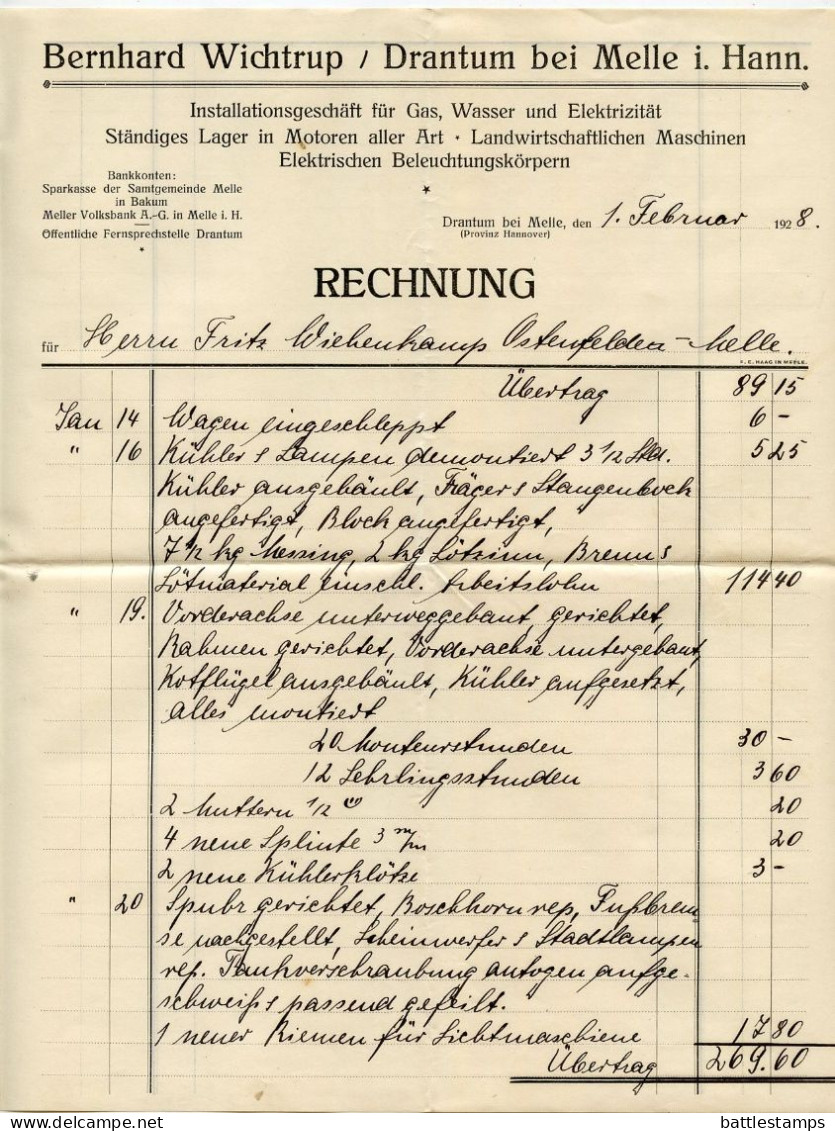 Bernhard Wichtrup / Drantum bei Melle i. Hann.
Installationsgeschäft für Gas, Wasser und Elektrizität
Ständiges Lager in Motoren aller Art · Landwirtschaftlichen Maschinen
Elektrischen Beleuchtungskörpern
Bankkonten:
Sparkasse der Samtgemeinde Melle
in Bakum
Meller Volksbank A.-G. in Melle i. H.
Öffentliche Fernsprechstelle Drantum
Drantum bei Melle, den 1. Februar 1928.
(Provinz Hannover)
RECHNUNG
für Herrn Fritz Wiehenkamp Ostenfelden-Melle.
F. E. HAAG IN MELLE.
Übertrag 89 15
Jan 14 Wagen eingeschleppt 6 -
" 16 Kühler & Lampen demontiert 3 1/2 Std. 5 25
Kühler ausgebäult, Träger & Stangenbock
angefertigt, Block angefertigt,
7 1/2 kg Messing, 2 kg Lötzinn, Brenn &
Lötmaterial einschl. Arbeitslohn 114 40
" 19. Vorderachse unterweggebaut, gerichtet,
Rahmen gerichtet, Vorderachse untergebaut,
Kotflügel ausgebäult, Kühler aufgesetzt,
alles montiert
20 Monteurstunden 30 -
12 Lehrlingsstunden 3 60
2 Muttern 1/2 " 20
4 neue Splinte 3 m/m 20
2 neue Kühlerklötze 3 -
" 20 gerichtet, Boschhorn rep, Fußbrem-
se nachgestellt, Scheinwerfer & Stadtlampen
rep. Tankverschraubung autogen aufge-
schweißt passend gefeilt.
1 neuer Riemen für Lichtmaschiene 17 80
Übertrag 269.60
delcampe.net
battlestamps